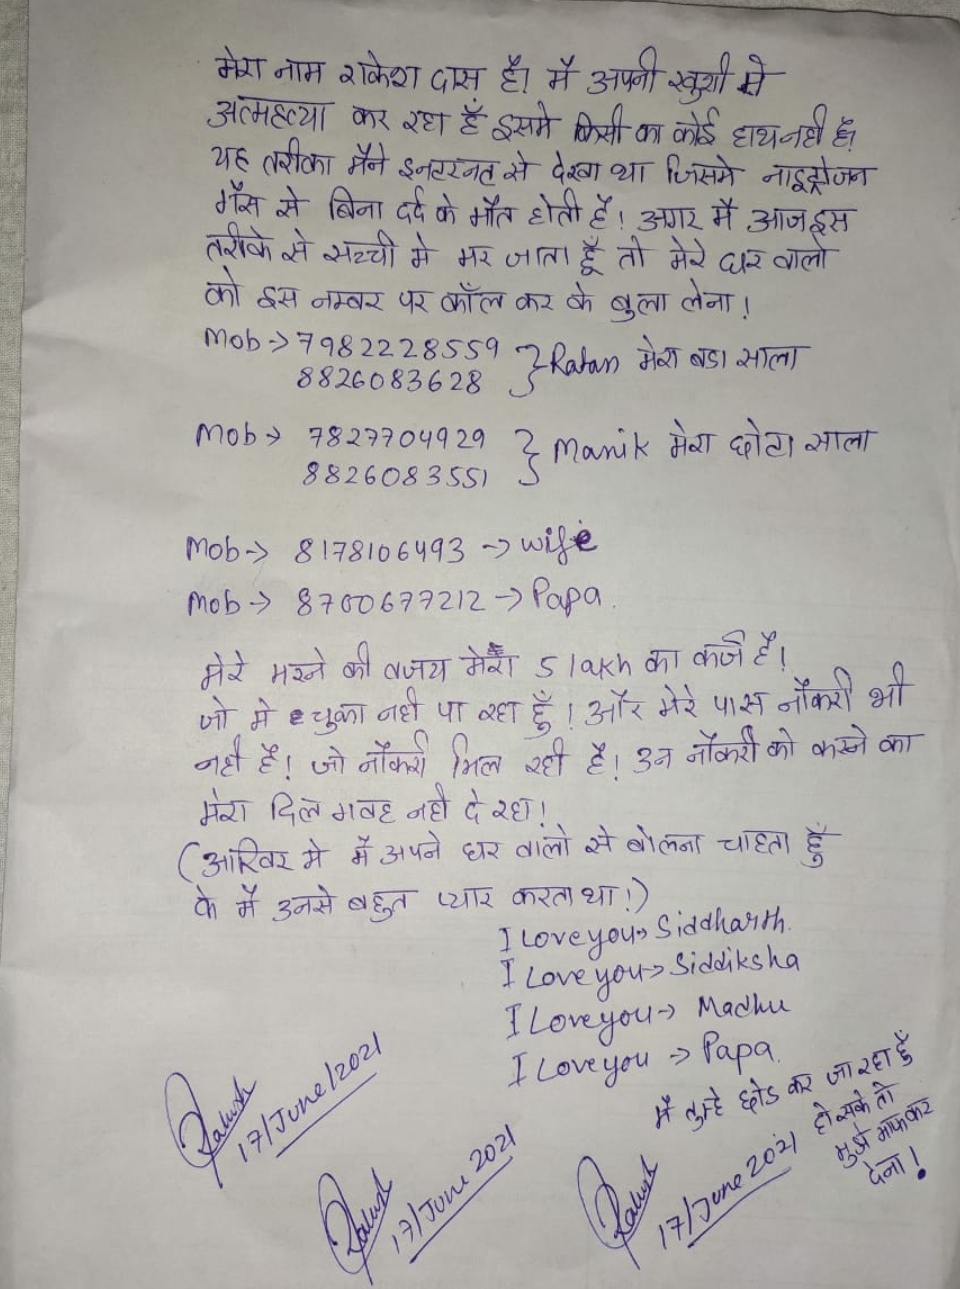 मेरा नाम राकेश दास है। मै अपनी खुशी से
आत्महत्या कर रहा हूँ इसमे किसी का कोई हाथ नही है।
यह तरीका मैने इनटरनट से देखा था जिसमे नाइट्रोजन
गैस से बिना दर्द के मौत होती है! अगर मै आज इस
तरीके से सच्ची मे मर जाता हूँ तो मेरे घर वालो
को इस नम्बर पर कॉल कर के बुला लेना!
Mob → 7982228559 } Ratan मेरा बडा साला
8826083628
Mob → 7827704929 } Manik मेरा छोटा साला
8826083551
Mob → 8178106493 → wife
Mob → 8700677212 → Papa.
मेरे मरने की वजय मेरा 5 lakh का कर्ज है!
जो मे चुका नही पा रहा हूँ! और मेरे पास नौकरी भी
नही है! जो नौकरी मिल रही है! उन नौकरी को करने का
मेरा दिल गवह नही दे रहा!
(आखिर मे मैं अपने घर वालो से बोलना चाहता हूँ
के मैं उनसे बहुत प्यार करता था!)
I Love you → Siddharth.
I Love you → Siddiksha
I Love you → Madhu
I Love you → Papa.
मैं तुम्हे छोड कर जा रहा हूँ
हो सके तो
मुझे माफ कर
देना!
Rakesh
17/June/2021
Rakesh
17/June 2021
Rakesh
17/June 2021